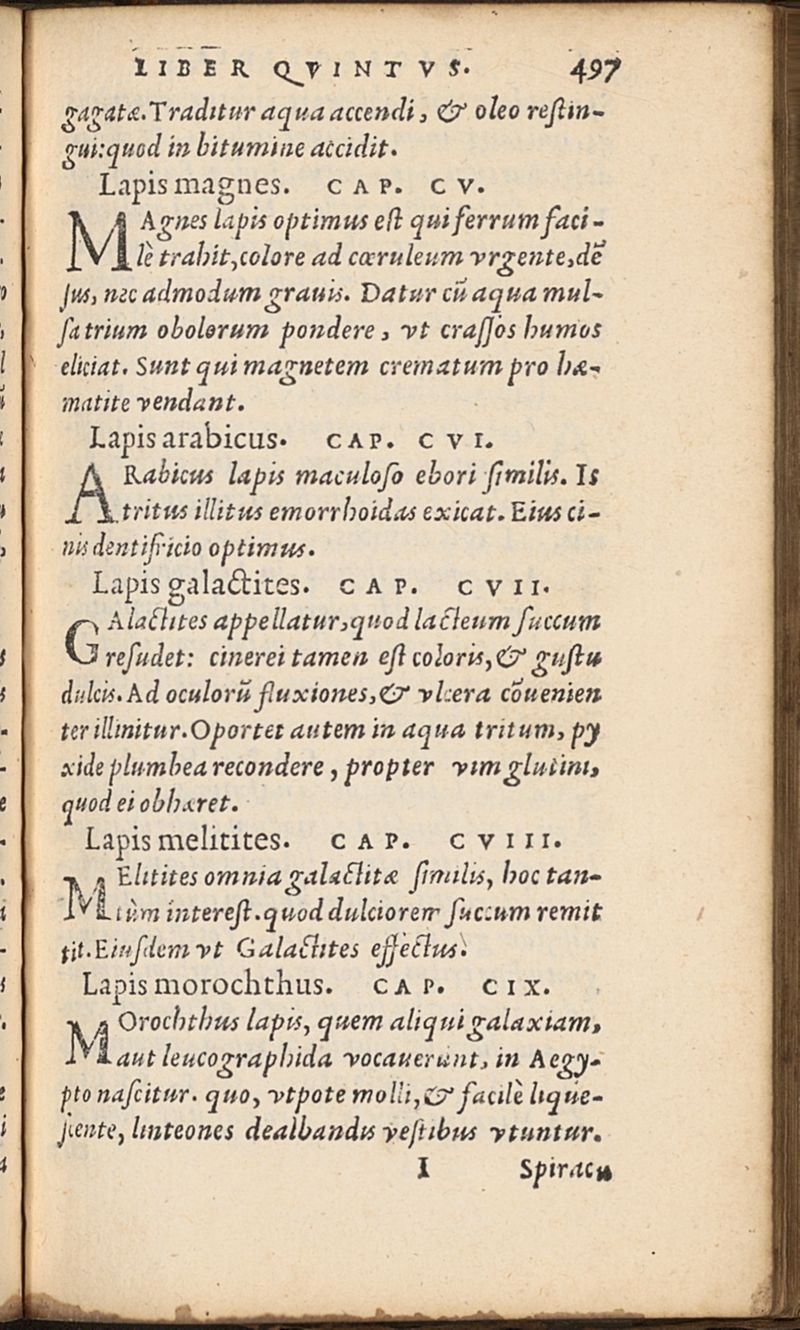 LIBER QVINTVS. 497
gagatæ. Traditur aqua accendi, & oleo reſtin-
gui: quod in bitumine accidit.
Lapis magnes. CAP. CV.
MAgnes lapis optimus eſt qui ferrum faci-
lè trahit, colore ad cœruleum vrgente, dẽ
ſus, nec admodum grauis. Datur cũ aqua mul-
ſa trium obolorum pondere, vt craſſos humos
eliciat. Sunt qui magnetem crematum pro hæ-
matite vendant.
Lapis arabicus. CAP. CVI.
ARabicus lapis maculoſo ebori ſimilis. Is
tritus illitus emorrhoidas exicat. Eius ci-
nis dentifricio optimus.
Lapis galactites. CAP. CVII.
GAlactites appellatur, quod lacteum ſuccum
reſudet: cinerei tamen eſt coloris, & guſtu
dulcis. Ad oculorũ fluxiones, & vlcera cõuenien
ter illinitur. Oportet autem in aqua tritum, py
xide plumbea recondere, propter vim glutini,
quod ei obhæret.
Lapis melitites. CAP. CVIII.
MElitites omnia galactitæ ſimilis, hoc tan-
tùm intereſt. quod dulciorem ſuccum remit
tit. Eiuſdem vt Galactites effectus.
Lapis morochthus. CAP. CIX.
MOrochthus lapis, quem aliqui galaxiam,
aut leucographida vocauerunt, in Aegy-
pto naſcitur. quo, vtpote molli, & facilè lique-
ſcente, linteones dealbandis veſtibus vtuntur.
I Spiracu